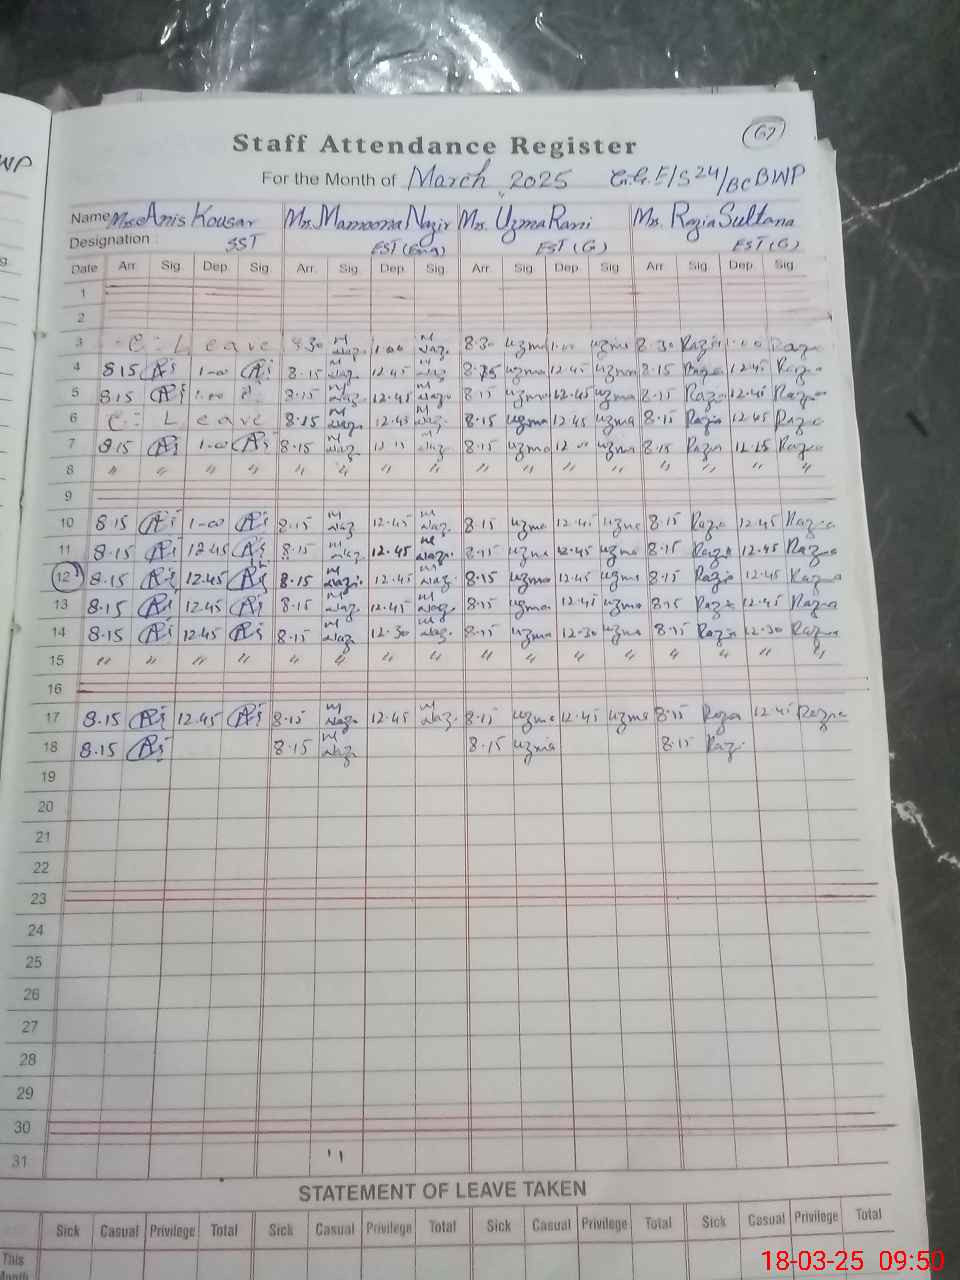 WP
67
Staff Attendance Register
For the Month of March 2025
Name Mrs. Anis Kousar Mrs. Mamoona Nazir Mrs. Uzma Rani Mrs. Razia Sultana
Designation : SST EST (Eng) EST (G) EST (G)
Date Arr. Sig. Dep Sig Arr. Sig. Dep. Sig. Arr. Sig Dep Sig. Arr. Sig Dep. Sig.
1
2
3 C: Leave 8.30 Naz. 1.00 Naz. 8.30 uzma 1.00 uzma 8.30 Razia 1.00
4 8.15 1-00 8.15 Naz. 12.45 Naz. uzma 12.45 uzma 8.15 12.45 Razia
5 8.15 1.00 8.15 Naz. 12.45 Naz. 8.15 uzma 12.45 uzma 8.15 Razia 12.45 Razia
6 C: Leave 8.15 Naz. 12.45 Naz. 8.15 uzma 12.45 uzma 8.15 Razia 12.45 Razia
7 8.15 1-00 8.15 Naz. Naz. 8.15 uzma uzma 8.15 Razia Razia
8 〃 〃 〃 〃 〃 〃 〃 〃 〃 〃 〃 〃 〃 〃 〃 〃
9
10 8.15 1-00 8.15 Naz. 12.45 Naz. 8.15 uzma 12.45 uzma 8.15 Razia 12.45 Razia
11 8.15 12.45 8.15 Naz. 12.45 Naz. 8.15 uzma 12.45 uzma 8.15 Razia 12.45 Razia
12 8.15 12.45 8.15 Naz. 12.45 Naz. 8.15 uzma 12.45 uzma 8.15 Razia 12.45 Razia
13 8.15 12.45 8.15 Naz. 12.45 Naz. 8.15 uzma 12.45 uzma 8.15 Razia 12.45 Razia
14 8.15 12.45 8.15 Naz. 12.30 Naz. 8.15 uzma 12.30 uzma 8.15 Razia 12.30 Razia
15 〃 〃 〃 〃 〃 〃 〃 〃 〃 〃 〃 〃 〃 〃 〃 〃
16
17 8.15 12.45 8.15 Naz. 12.45 Naz. 8.15 uzma 12.45 uzma 8.15 Razia 12.45 Razia
18 8.15 8.15 Naz. 8.15 uzma 8.15 Razi
19
20
21
22
23
24
25
26
27
28
29
30
31
STATEMENT OF LEAVE TAKEN
Sick Casual Privilege Total Sick Casual Privilege Total Sick Casual Privilege Total Sick Casual Privilege Total
This
Month
18-03-25 09:50